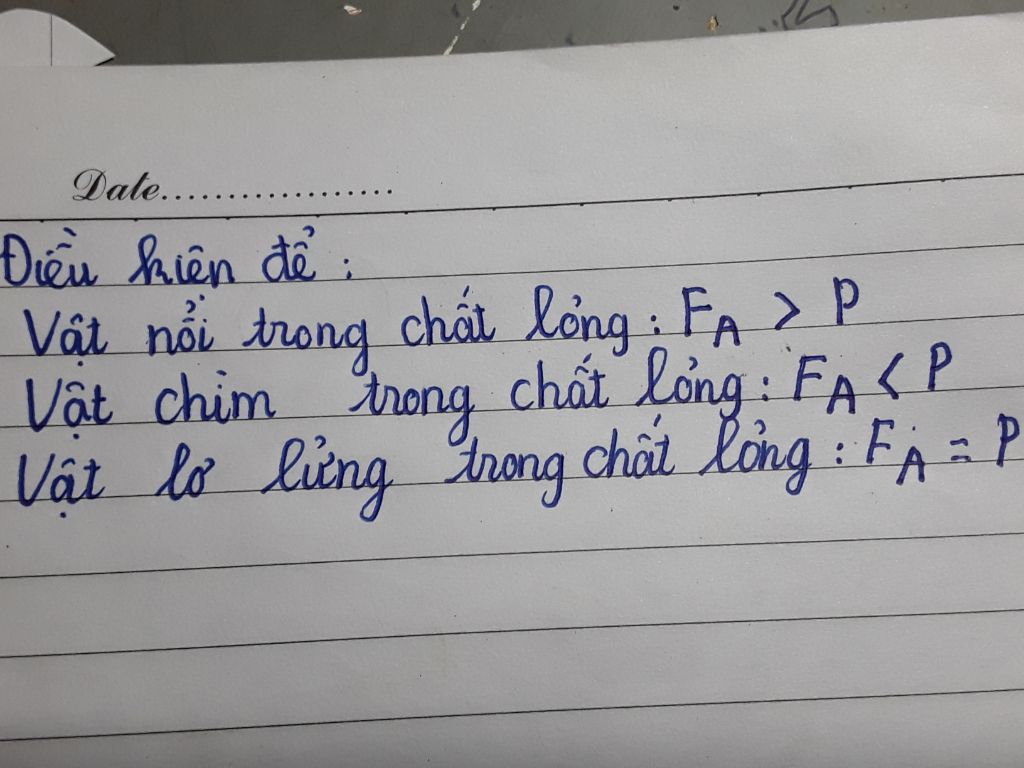 Date..................
Điều kiện để :
Vật nổi trong chất lỏng : FA > P
Vật chìm trong chất lỏng : FA < P
Vật lơ lửng trong chất lỏng : FA = P